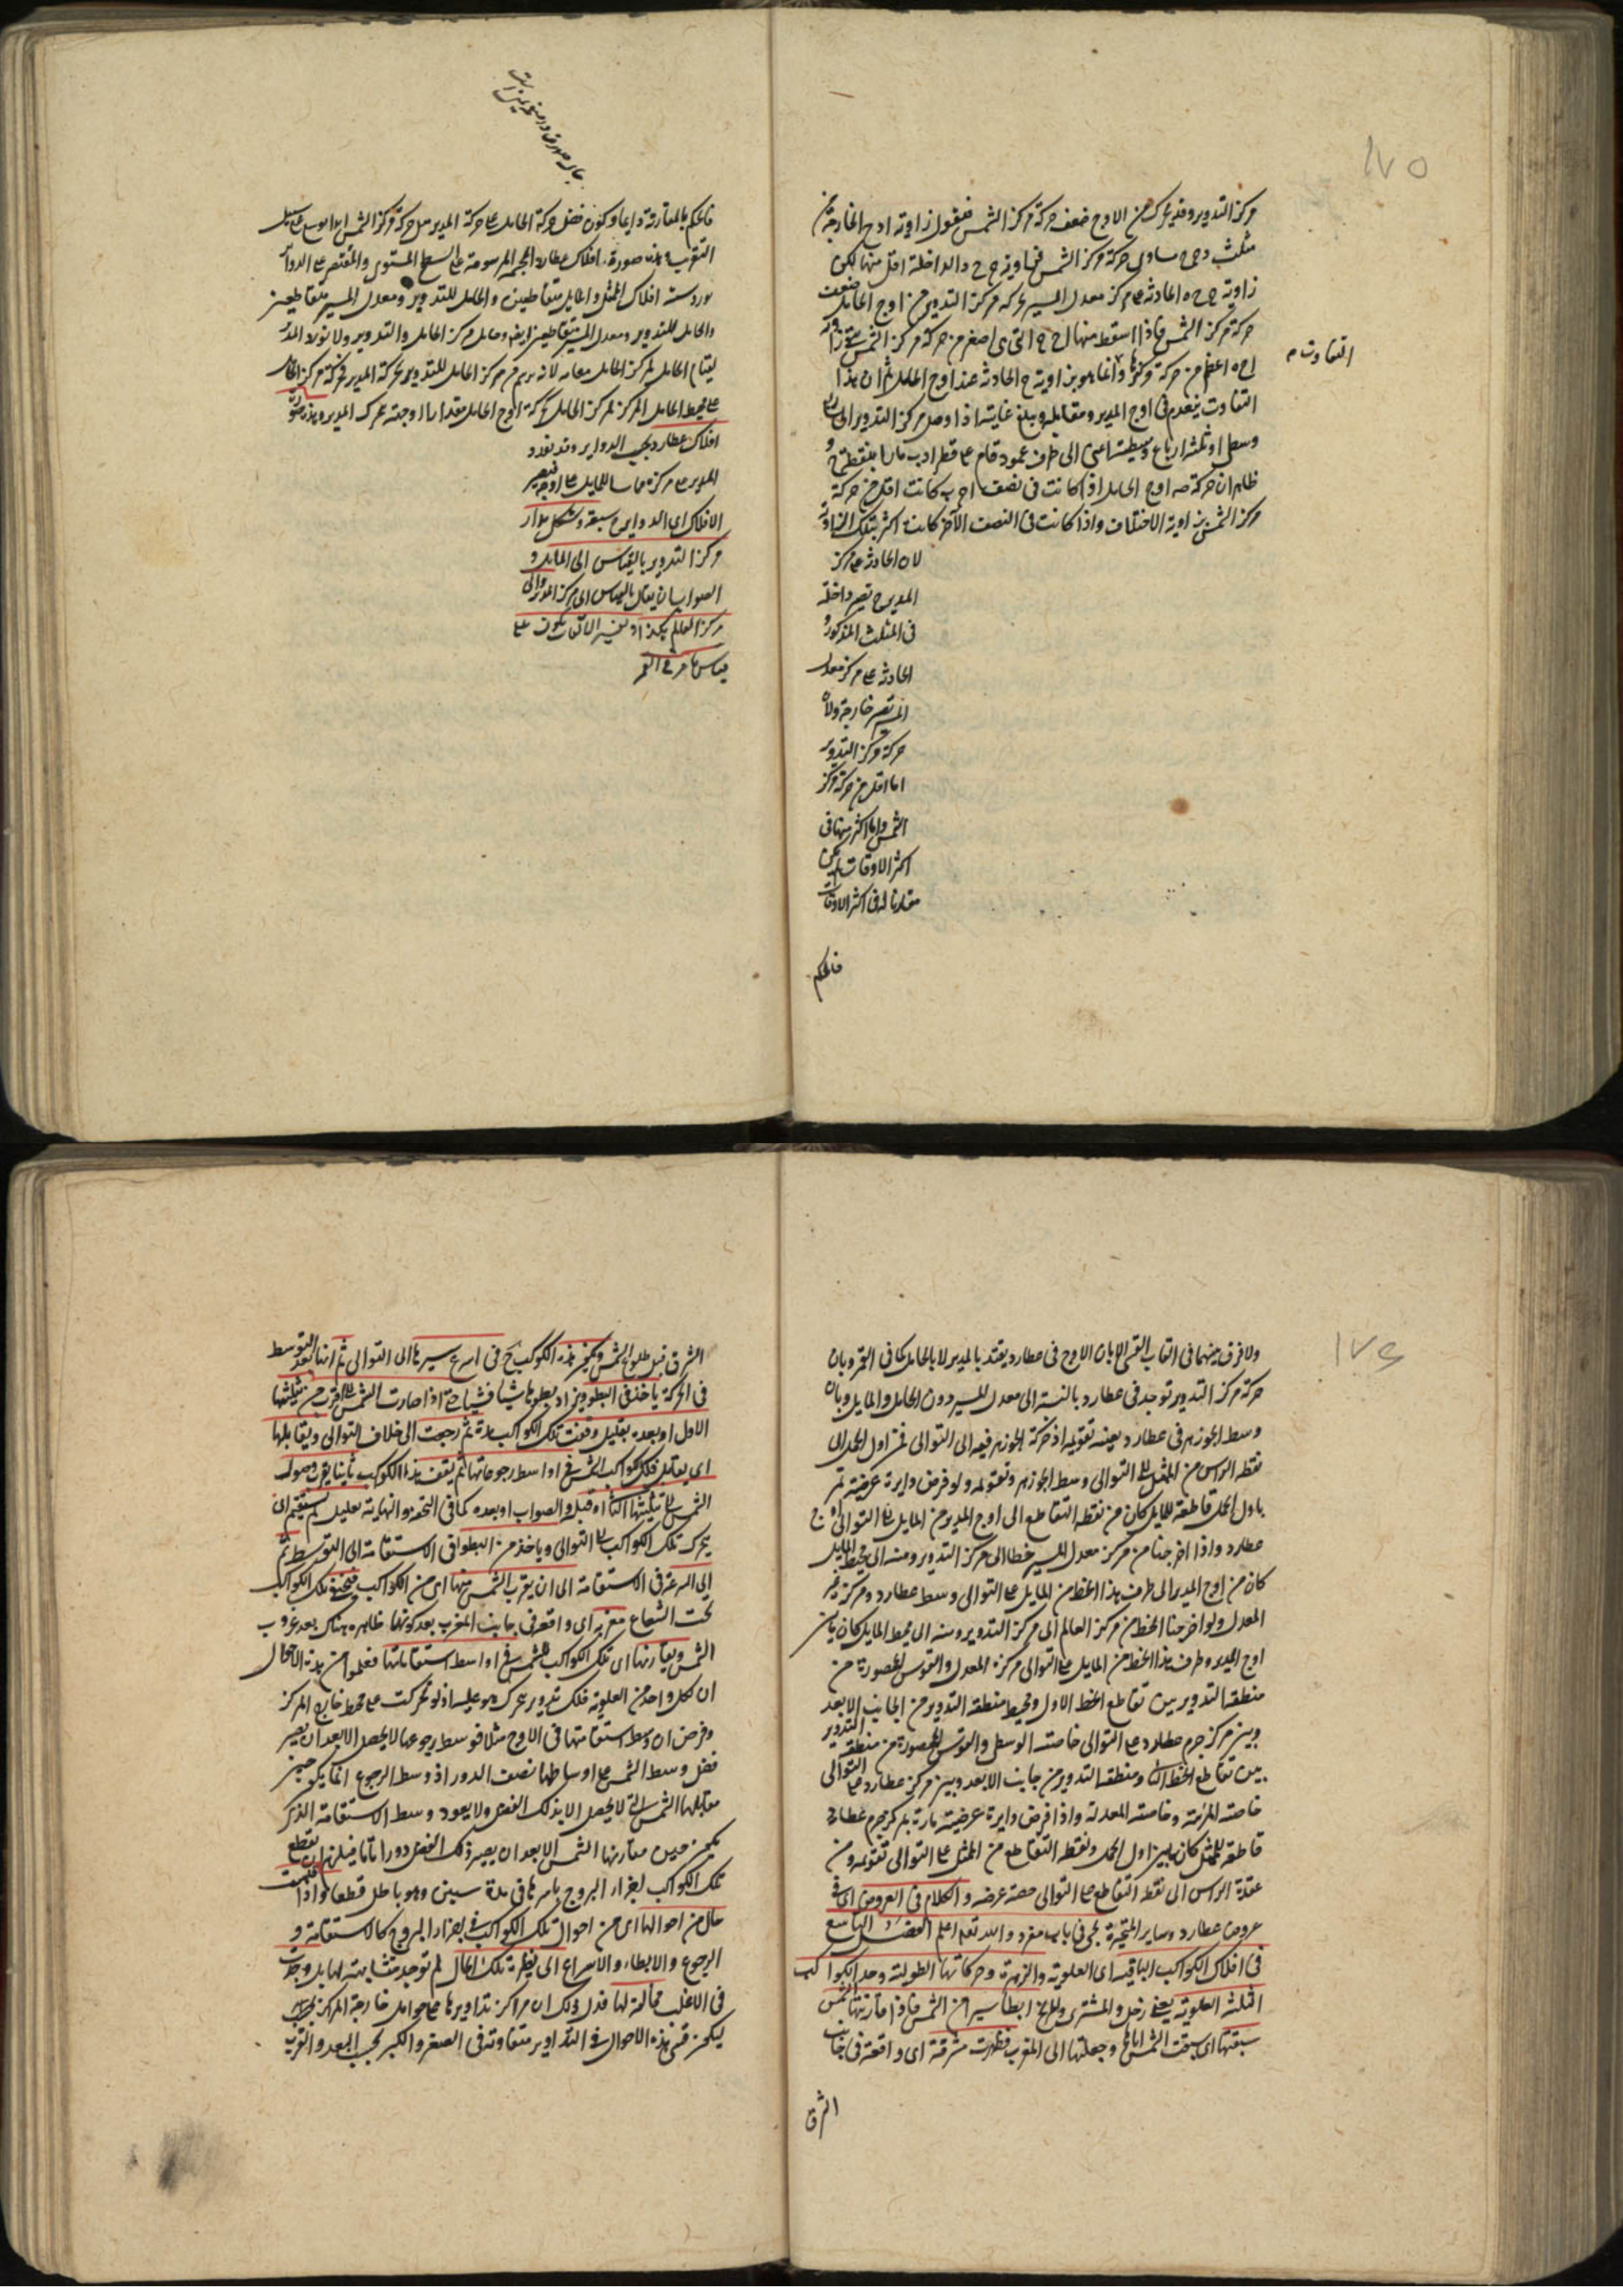 ١٧٥
مركز التدوير وقد تحرك من الاوج ضعف حركة مركز الشمس فنقول زاوية ا د ح الخارجة من
مثلث د ح ه مساوى حركة مركز الشمس فزاوية ح ح والداخلة اقل منها لكن
زاوية ح ه الحادثة على مركز معدل المسير بحركة مركز التدوير من اوج الحامل ضعف
حركة مركز الشمس فاذا اسقط منها ح التى هى اصغر من حركة مركز الشمس بقى زاوية
ا ح ه اعظم من حركة مركزها وانما هو بزاوية ح الحادثة عند اوج الحامل ثم ان هذا
التفاوت م
التفاوت ينعدم فى اوج المدير ومقابله ويبلغ غايته اذا وصل مركز التدوير الى
وسطى او ثلثه ارباع وسيطته اعنى الى طرف عمود قام على قطر ا د ب مارا بنقطة ح و
ظاهر ان حركة اوج الحامل اذا كانت فى نصف ا ح ب كانت اقل من حركة
مركز الشمس بزاوية الاختلاف واذا كانت فى النصف الآخر كانت اكثر بتلك الزاوية
لان الحادثة على مركز
المدير ح تصير داخلة
فى المثلث المذكور و
الحادثة على مركز معدل
المسير تصير خارجة ولان
حركة مركز التدوير
اما اقل من حركة مركز
الشمس واما اكثر منها فى
اكثر الاوقات لم يكن
مقارنا له فى اكثر الاوقات
فالحكم
فالحكم بالمقارنة دايما وكون فضل حركة الحامل على حركة المدير مثل حركة مركز الشمس ابدا على سبيل
التقريب وهذه صورة افلاك عطارد المجسمة المرسومة على السطح المستوى والمقتصر على الدواير
يورد ستة افلاك الممثل والمايل متقاطعين والحامل للتدوير ومعدل المسير متقاطعين
والحامل للتدوير ومعدل المسير متقاطعين ايضا وحامل مركز الحامل والتدوير ولا يورد المدير
لقيام الحامل لمركز الحامل مقامه لانه يرسم من مركز الحامل للتدوير بحركة المدير فحركة مركز الحامل
على محيط الحامل لمركز الحامل كحركة اوج الحامل مقدارا وجهة بحركة المدير وهذه صورة
افلاك عطارد بحسب الدواير وقد نورد
المدير على مركزه مماسا للمايل على اوجه فيصير
الافلاك اى الدواير ح سبعة وشكل مدار
مركز التدوير بالقياس الى المايل و
الصواب ان يقال بالقياس الى مركز المدير والى
مركز العالم هكذا وتفسير الالقاب يكون على
قياس ما مر فى القمر
١٧٤
ولا فرق بينهما فى القاب القسى الا بان الاوج فى عطارد يقيد بالمدير لا بالحامل كما فى القمر وبان
حركة مركز التدوير توجد فى عطارد بالنسبة الى معدل المسير دون الحامل والمايل وبان
وسط الجوزهر فى عطارد بعينه تقويمه اذ حركة الجوزهر فيه الى التوالى فمن اول الحمل الى
نقطة الراس من الممثل على التوالى وسط الجوزهر وتقويمه ولو فرض دايرة عرضية تمر
باول الحمل قاطعة للمايل كان من نقطة التقاطع الى اوج المدير من المايل على التوالى اوج
عطارد واذا اخرجنا من مركز معدل المسير خطا الى مركز التدوير ومنه الى محيط المايل
كان من اوج المدير الى طرف هذا الخط من المايل على التوالى وسط عطارد ومركزه غير
المعدل ولو اخرجنا الخط من مركز العالم الى مركز التدوير ومنه الى محيط المايل كان ما بين
اوج المدير وطرف هذا الخط من المايل على التوالى مركزه المعدل والقوس المحصورة من
منطقة التدوير بين تقاطع الخط الاول ومحيط منطقة التدوير من الجانب الابعد
وبين مركز جرم عطارد على التوالى خاصته الوسطى والقوس المحصورة من منطقة التدوير
بين تقاطع الخط الثانى ومنطقة التدوير من جانب الابعد وبين مركز عطارد على التوالى
خاصته المرئية وخاصته المعدلة واذا فرض دايرة عرضية مارة بمركز جرم عطارد
قاطعة للممثل كان ما بين اول الحمل ونقطة التقاطع من الممثل على التوالى تقويمه ومن
عقدة الراس الى نقطة التقاطع على التوالى حصة عرضه والكلام فى العروض اى فى
عروض عطارد وساير المتحيرة يجئ فى باب مفرد والله تعالى اعلم الفصل التاسع
فى افلاك الكواكب الباقية اى العلوية والزهرة وحركاتها الطولية وجد الكواكب
الثلثة العلوية يعنى زحل والمشترى والمريخ ابطأ سيرا من الشمس فاذا قارنتها الشمس
سبقتها اى سبقت الشمس اياها وجعلتها الى المغرب فظهرت مشرقة اى واقعة فى جانب
الشرق
الشرق قبل طلوع الشمس وتكون هذه الكواكب ح فى اسرع سيرها الى التوالى ثم انها بعد التوسط
فى الحركة ياخذ فى البطؤ ويزداد بطؤها شيا فشيا حتى اذا صارت الشمس الى قرب من تثليثها
الاول او بعده بقليل وقفت تلك الكواكب مدة ثم رجعت الى خلاف التوالى ويقابلها
اى يقابل تلك الكواكب الشمس فى اواسط رجوعاتها ثم يقف هذه الكواكب ثانيا بقرب وصول
الشمس الى تثليثها الثانى او قبله والصواب او بعده كما فى التحفة والنهاية بقليل ثم تستقيم اى
يتحرك تلك الكواكب الى التوالى وياخذ من البطؤ فى الاستقامة الى التوسط ثم
الى السرعة فى الاستقامة الى ان يقرب الشمس منها اى من الكواكب فتختفى تلك الكواكب
تحت الشعاع مغربة اى واقعة فى جانب المغرب بعد كونها ظاهرة هناك بعد غروب
الشمس ويقارنها اى تلك الكواكب الشمس فى اواسط استقاماتها فعلموا من هذه الاحوال
ان لكل واحد من العلوية فلك تدوير يتحرك هو عليه اذ لو تحركت على محيط خارج المركز
وفرض ان وسط استقامتها فى الاوج مثلا فوسط رجوعها لا يحصل الا بعد ان يصير
فضل وسط الشمس على اوساطها نصف الدور اذ وسط الرجوع انما يكون حين
مقابلها الشمس التى لا يحصل الا بذلك الفضل ولا يعود وسط الاستقامة الذى
يكون حين مقارنتها الشمس الا بعد ان يصير ذلك الفضل دورا تاما فيلزم ان يقطع
تلك الكواكب اجزاء البروج باسرها فى مدة سنين وهو باطل قطعا واذا قيست
حال من احوالها اى من احوال تلك الكواكب فى اجزاء البروج كالاستقامة و
الرجوع والابطاء والاسراع الى نظيره تلك الحال لم توجد متشابهة لها بل وجدت
فى الاغلب مخالفة لها فدل ذلك ان مراكز تداويرها على حوامل خارجة المراكز
ليكون قسى هذه الاحوال فى التداوير متفاوتة فى الصغر والكبر بحسب البعد والقرب